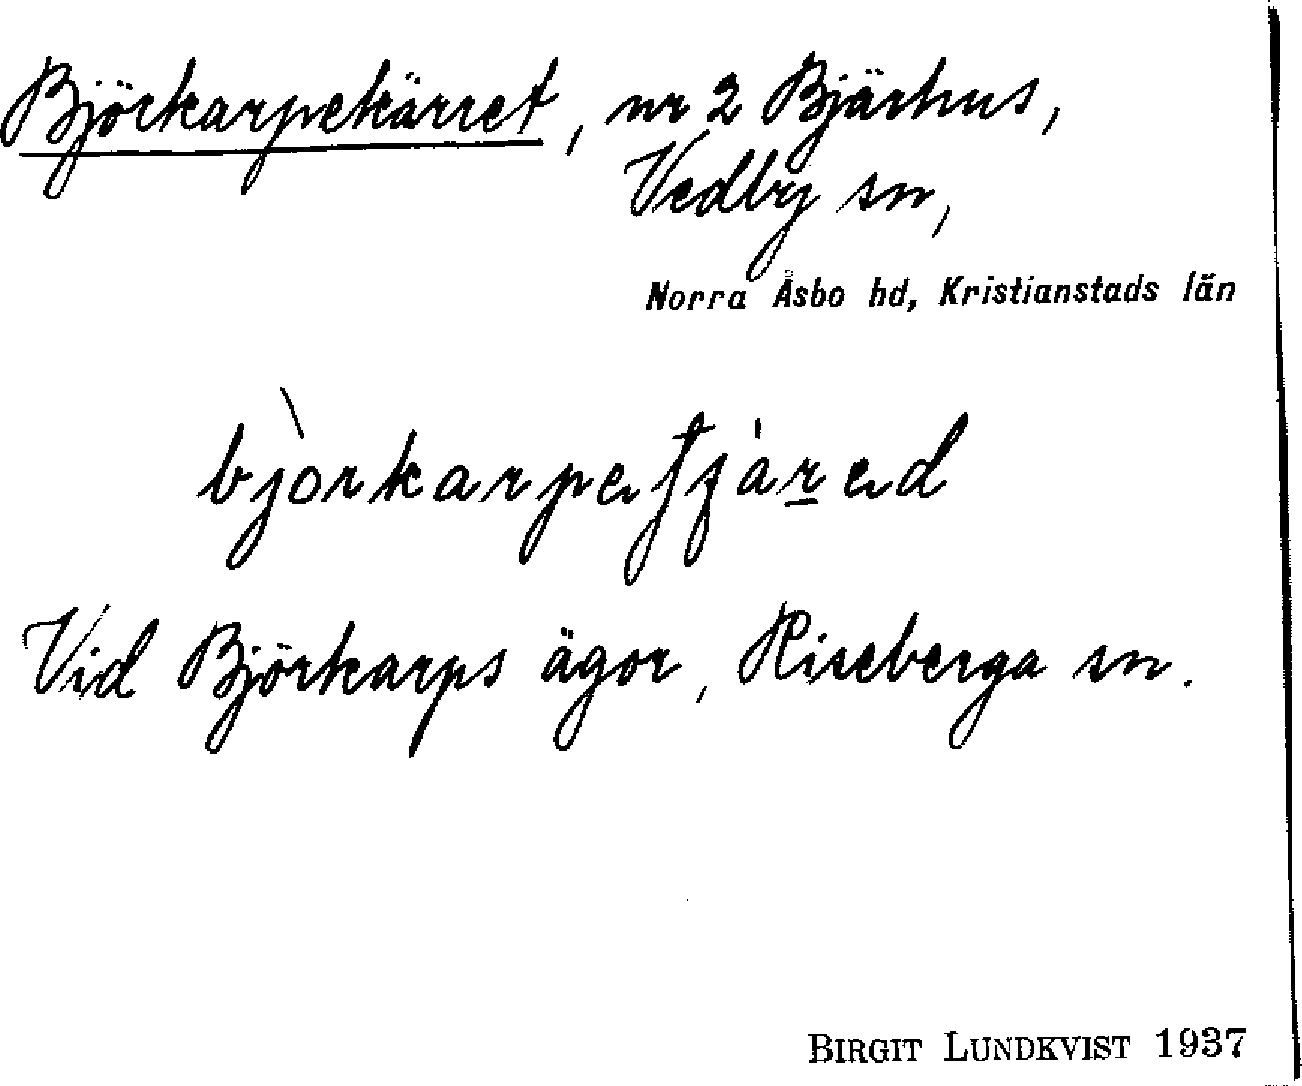 Björkarpekärret, nr 2 Bjärhus,
Vedby sn,
Norra Åsbo hd, Kristianstads län
Vid Björkarps ägor, Riseberga sn.
BIRGIT LUNDKVIST 1937